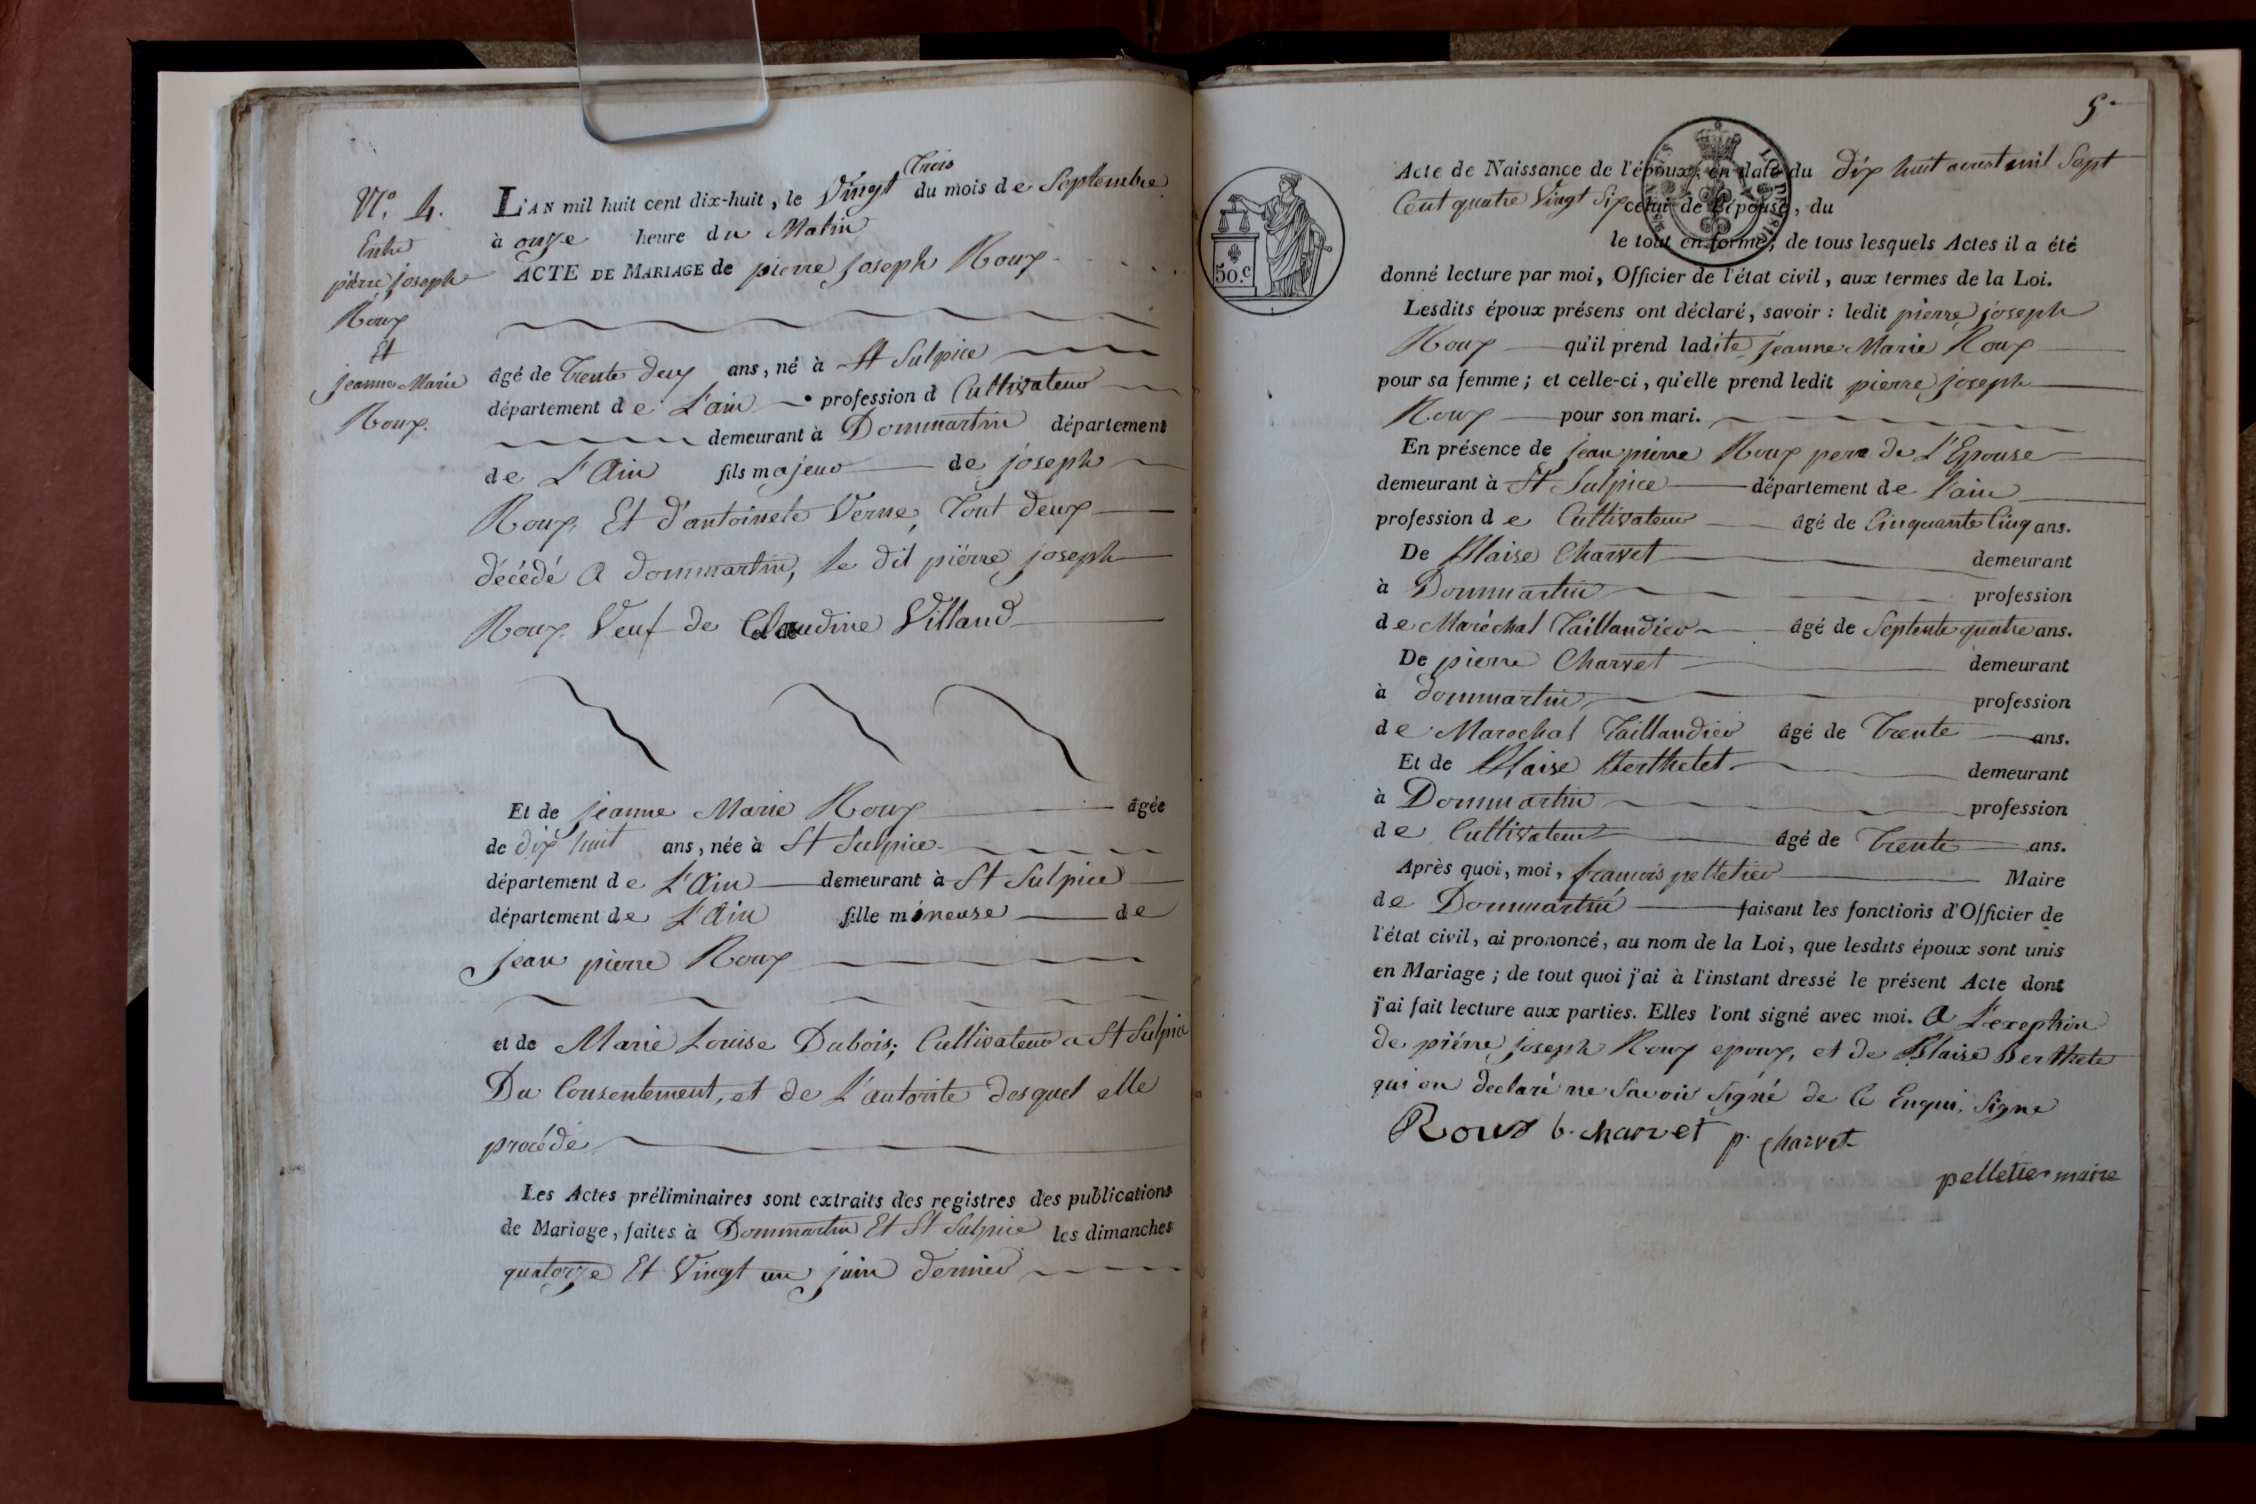 N.º 4.
Entre
pierre joseph
Roux
Et
jeanne Marie
Roux.
L'AN mil huit cent dix-huit, le Vingt Trois du mois de Septembre
à onze heure du Matin
ACTE DE MARIAGE de pierre joseph Roux
âgé de trente deux ans, né à St Sulpice
département de L'ain profession d Cultivateur
demeurant à Dommartin département
de L'Ain fils majeur de joseph
Roux, Et d'antoinete Verne, tout deux
décédé a dommartin, le dit pierre joseph
Roux Veuf de Claudine Villand
Et de jeanne Marie Roux âgée
de dix huit ans, née à St Sulpice
département de L'Ain demeurant à St Sulpice
département de L'Ain fille mineuse de
jean pierre Roux
et de Marie Louise Dubois; Cultivateur a St Sulpice
Du Consentement, et de L'autorite desquel elle
procéde
Les Actes préliminaires sont extraits des registres des publications
de Mariage, faites à Dommartin Et St Sulpice les dimanches
quatorze Et Vingt un juin dernier
5.
50.c
Acte de Naissance de l'époux, en date du dix huit aoust mil Sept
Cent quatre Vingt Six celui de l'épouse, du
le tout en forme; de tous lesquels Actes il a été
donné lecture par moi, Officier de l'état civil, aux termes de la Loi.
Lesdits époux présens ont déclaré, savoir : ledit pierre joseph
Roux qu'il prend ladite jeanne Marie Roux
pour sa femme; et celle-ci, qu'elle prend ledit pierre joseph
Roux pour son mari.
En présence de jean pierre Roux pere de L'Epouse
demeurant à St Sulpice département de l'ain
profession de Cultivateur âgé de Cinquante Cinq ans.
De Blaise Charvet demeurant
à Dommartin profession
de Maréchal Taillandier âgé de Septente quatre ans.
De pierre Charvet demeurant
à dommartin profession
de Marechal Taillandier âgé de Trente ans.
Et de Blaise Berthelet demeurant
à Dommartin profession
de Cultivateur âgé de Trente ans.
Après quoi, moi, francois pelletier Maire
de Dommartin faisant les fonctions d'Officier de
l'état civil, ai prononcé, au nom de la Loi, que lesdits époux sont unis
en Mariage; de tout quoi j'ai à l'instant dressé le présent Acte dont
j'ai fait lecture aux parties. Elles l'ont signé avec moi. a L'exeption
de pierre joseph Roux epoux, et de Blaise Berthete
qui on declaré ne Savoir Signé de Ce Enqui. Signe
Roux b. charvet p. charvet
pelletier maire